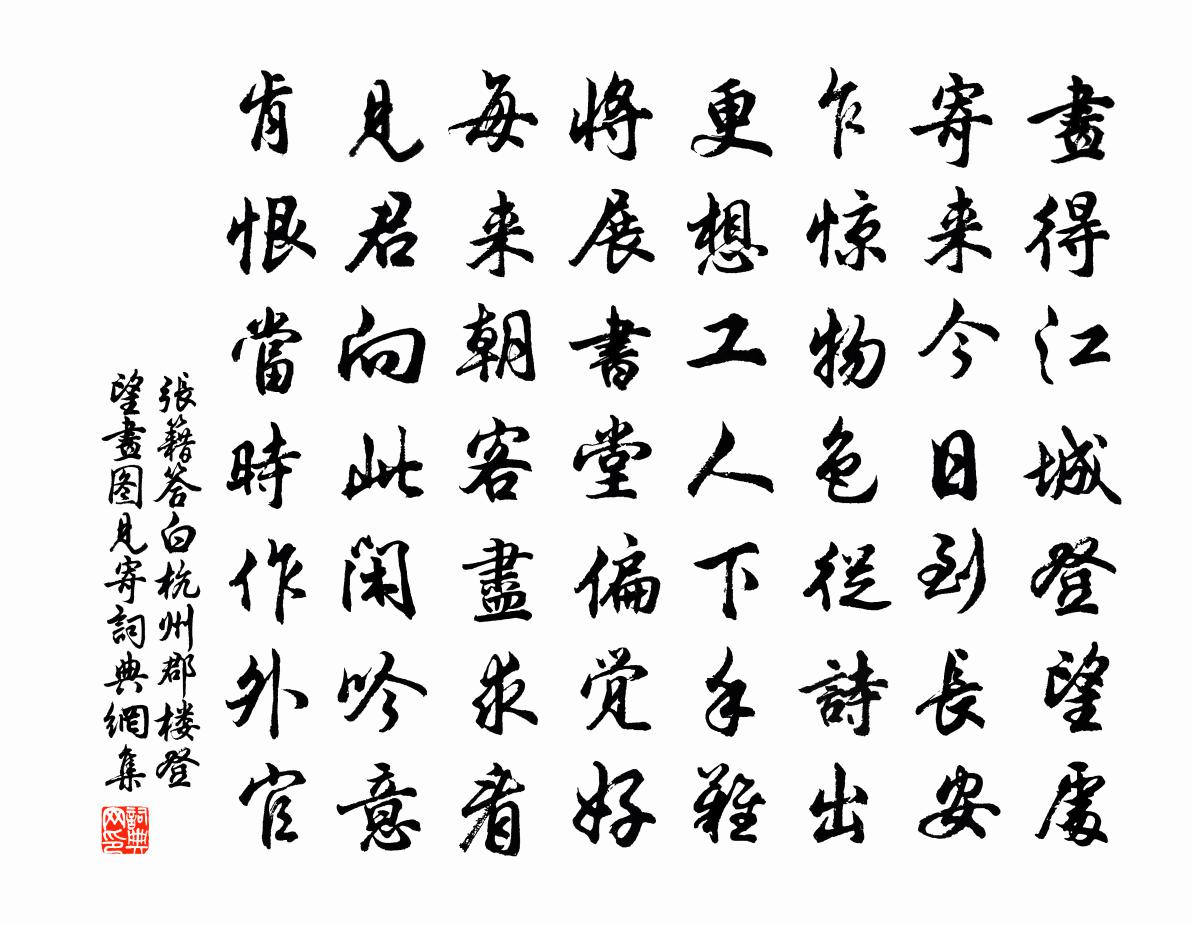 畫得江城登望處
寄来今日到長安
乍惊物色從詩出
更想工人下手難
将展書堂偏觉好
每来朝客盡求看
見君向此閑吟意
肯恨當時作外官
張籍答白杭州郡楼登
望畫图見寄詞典網集
詞典网印